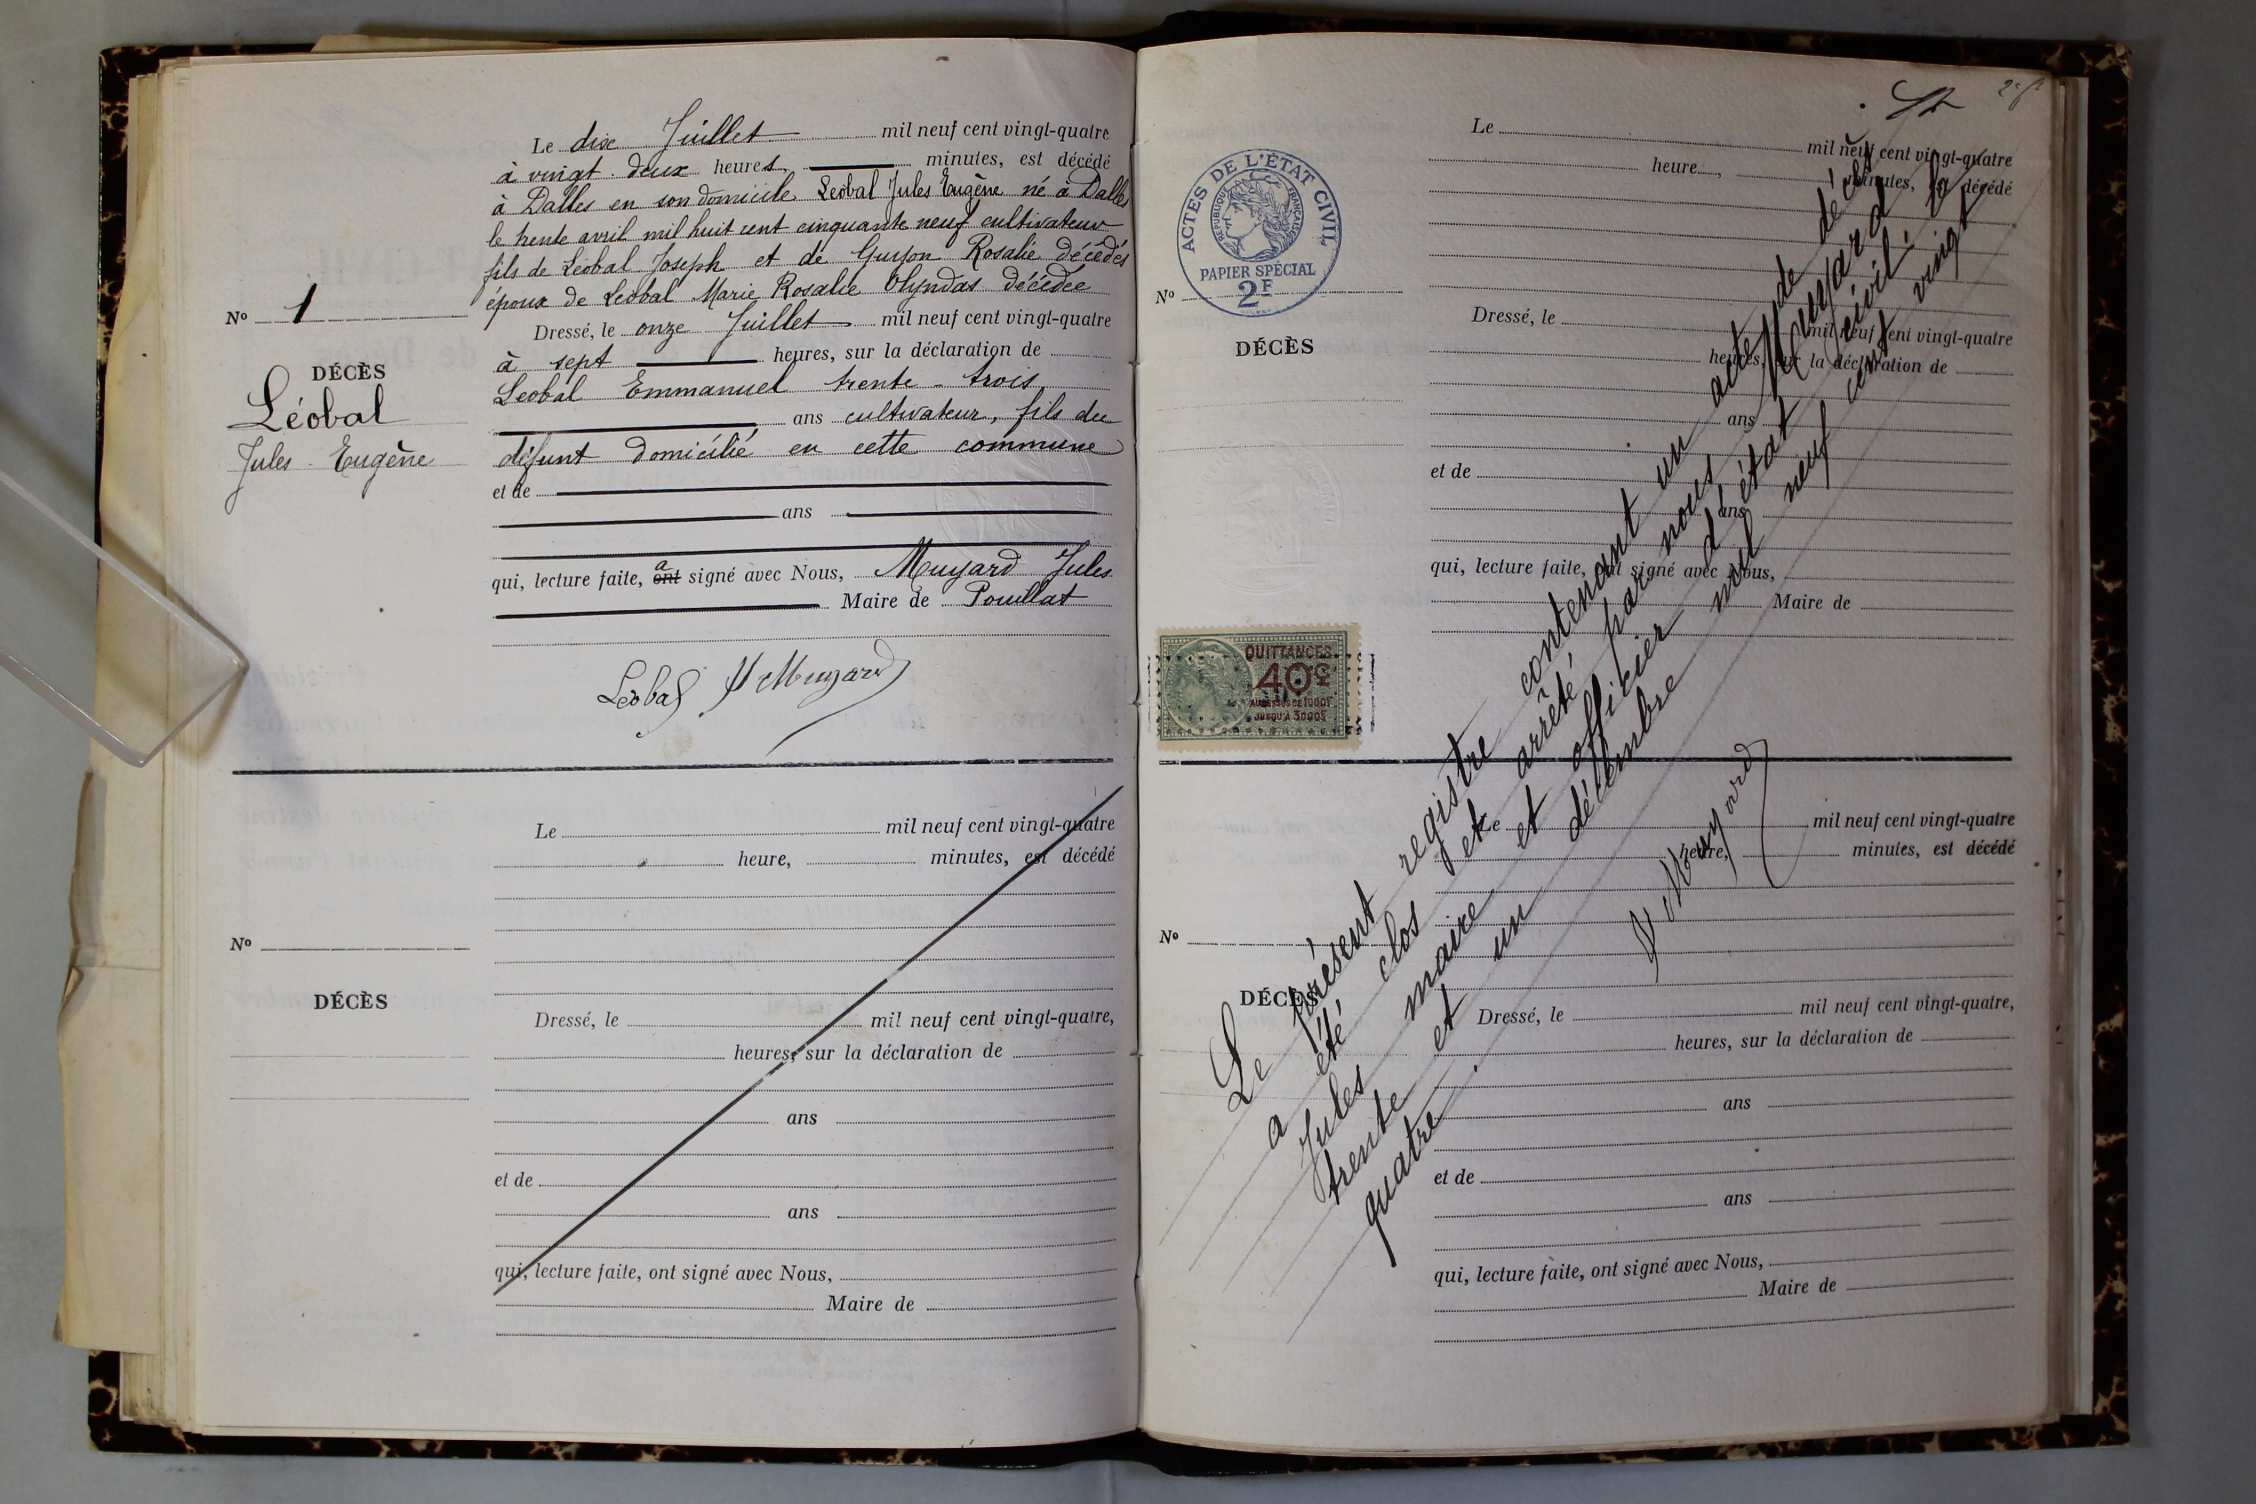 Le dix Juillet mil neuf cent vingt-quatre
à vingt-deux heures, minutes, est décédé
à Dalles en son domicile Léobal Jules Eugène né à Dalles
le trente avril mil huit cent cinquante neuf cultivateur
fils de Léobal Joseph et de Guyon Rosalie décédés
époux de Léobal Marie Rosalie Olyndas décédée
No 1
Dressé, le onze Juillet mil neuf cent vingt-quatre
à sept heures, sur la déclaration de
DÉCÈS
Léobal
Jules Eugène
Leobal Emmanuel trente-trois
ans cultivateur, fils du
défunt domicilié en cette commune
et de
ans
qui, lecture faite, ont a signé avec Nous, Muyard Jules
Maire de Pouillat
Léobal J Muyard
Le mil neuf cent vingt-quatre
heure, minutes, est décédé
No
DÉCÈS
Dressé, le mil neuf cent vingt-quatre,
heures, sur la déclaration de
ans
et de
ans
qui, lecture faite, ont signé avec Nous,
Maire de
Le mil neuf cent vingt-quatre
heure, minutes, décédé
ACTES DE L'ÉTAT CIVIL
RÉPUBLIQUE FRANÇAISE
PAPIER SPÉCIAL
2F
No
DÉCÈS
Dressé, le mil neuf cent vingt-quatre
heures, sur la déclaration de
ans
et de
ans
qui, lecture faite, ont signé avec Nous,
Maire de
QUITTANCES
40c
AU-DESSUS DE 1000F
JUSQU'À 3000F
Le présent registre contenant un acte de décès
a été clos et arrêté par nous Muyard
Jules maire et officier d'état civil le
trente et un décembre mil neuf cent vingt
quatre.
J Muyard
Le mil neuf cent vingt-quatre
heure, minutes, est décédé
No
DÉCÈS
Dressé, le mil neuf cent vingt-quatre,
heures, sur la déclaration de
ans
et de
ans
qui, lecture faite, ont signé avec Nous,
Maire de